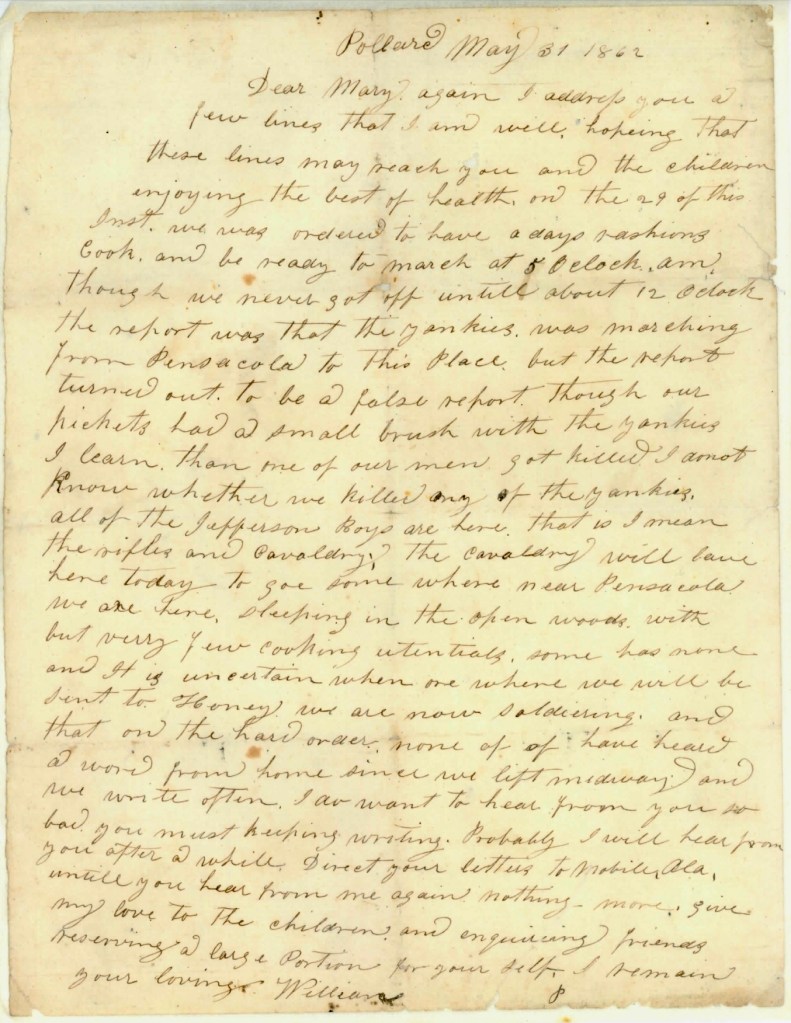 Pollard May 31 1862
Dear Mary. again I address you a
few lines that I am well, hoping that
these lines may reach you and the children
enjoying the best of health. on the 29 of this
Inst. we was ordered to have a days rashions
Cook. and be ready to march at 5 Oclock. am.
though we never got off untill about 12 Oclock
the report was that the yankies. was marching
from Pensacola to this Place. but the report
turned out. to be a false report. though our
pickets had a small brush with the yankies
I learn. than one of our men got killed I donot
Know whether we killed any of the yankies.
all of the Jefferson Boys are here. that is I mean
the rifles and Cavaldry; the cavaldry will leave
here today to goe some where near Pensacola
we are here, sleeping in the open woods. with
but verry few cooking utentials. some has none
and It is uncertain when ore where we will be
sent to. Honey we are now soldiering. and
that on the hard order. none of of have heard
a word from home since we lift midway and
we write often. I do want to hear from you so
bad. you must keeping writing. Probably I will hear from
you after a while. Direct your letters to Mobile, Ala,
untill you hear from me again nothing more. give
my love to the children. and enquiring friends
reserving a large Portion for your self. I remain
your loving. William